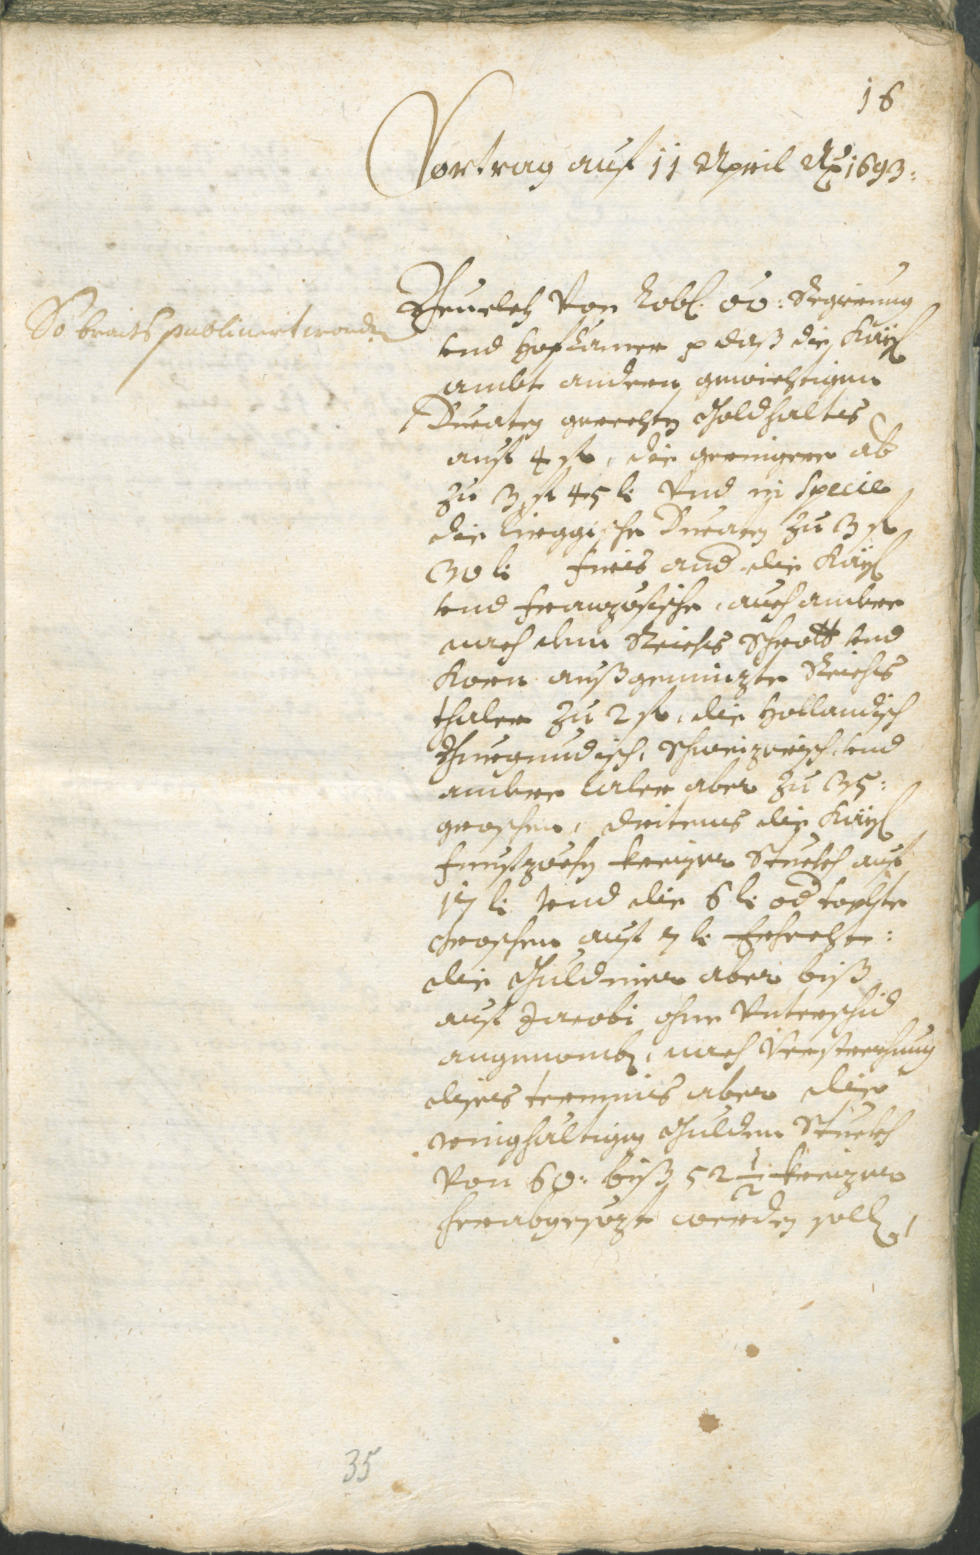 16
Vortrag auf 11 April Aō 1693:
So beraits publiciert worden
Bevelch von Lobl: OÖ: Regierung
vnd Hof Camer p daß die Kaÿ:
ambt andern gewichtigen
Ducaten gerechten Goldhaltes
auf 4 f, die geringere ab
zu 3 f 45 k: vnd in specie
die Ducaten zu 3 f
30 k: die Kaÿ:
vnd französische, auch andere
nach dem Reichs Schrott vnd
Korn außgeminzte Reichs
thaler zu 2 f, die Hollandisch
Burgundisch, Schweizerisch, vnd
andere taler aber zu 35:
groschen, dritens die Kaÿ:
funfzechen kreizer Stuckh auf
17 k: vnd die 6 k: od toplte
Groschen auf 7 k: Erhechte:
die Guldiner aber biß
auf Jacobi ohne Vnterschid
angenomben, nach Verstreichung
dises termins aber die
ringhaltigen Gulden Stuckh
von 60: biß 52 1/2 kreizer
herabgesezt werden solle,
35